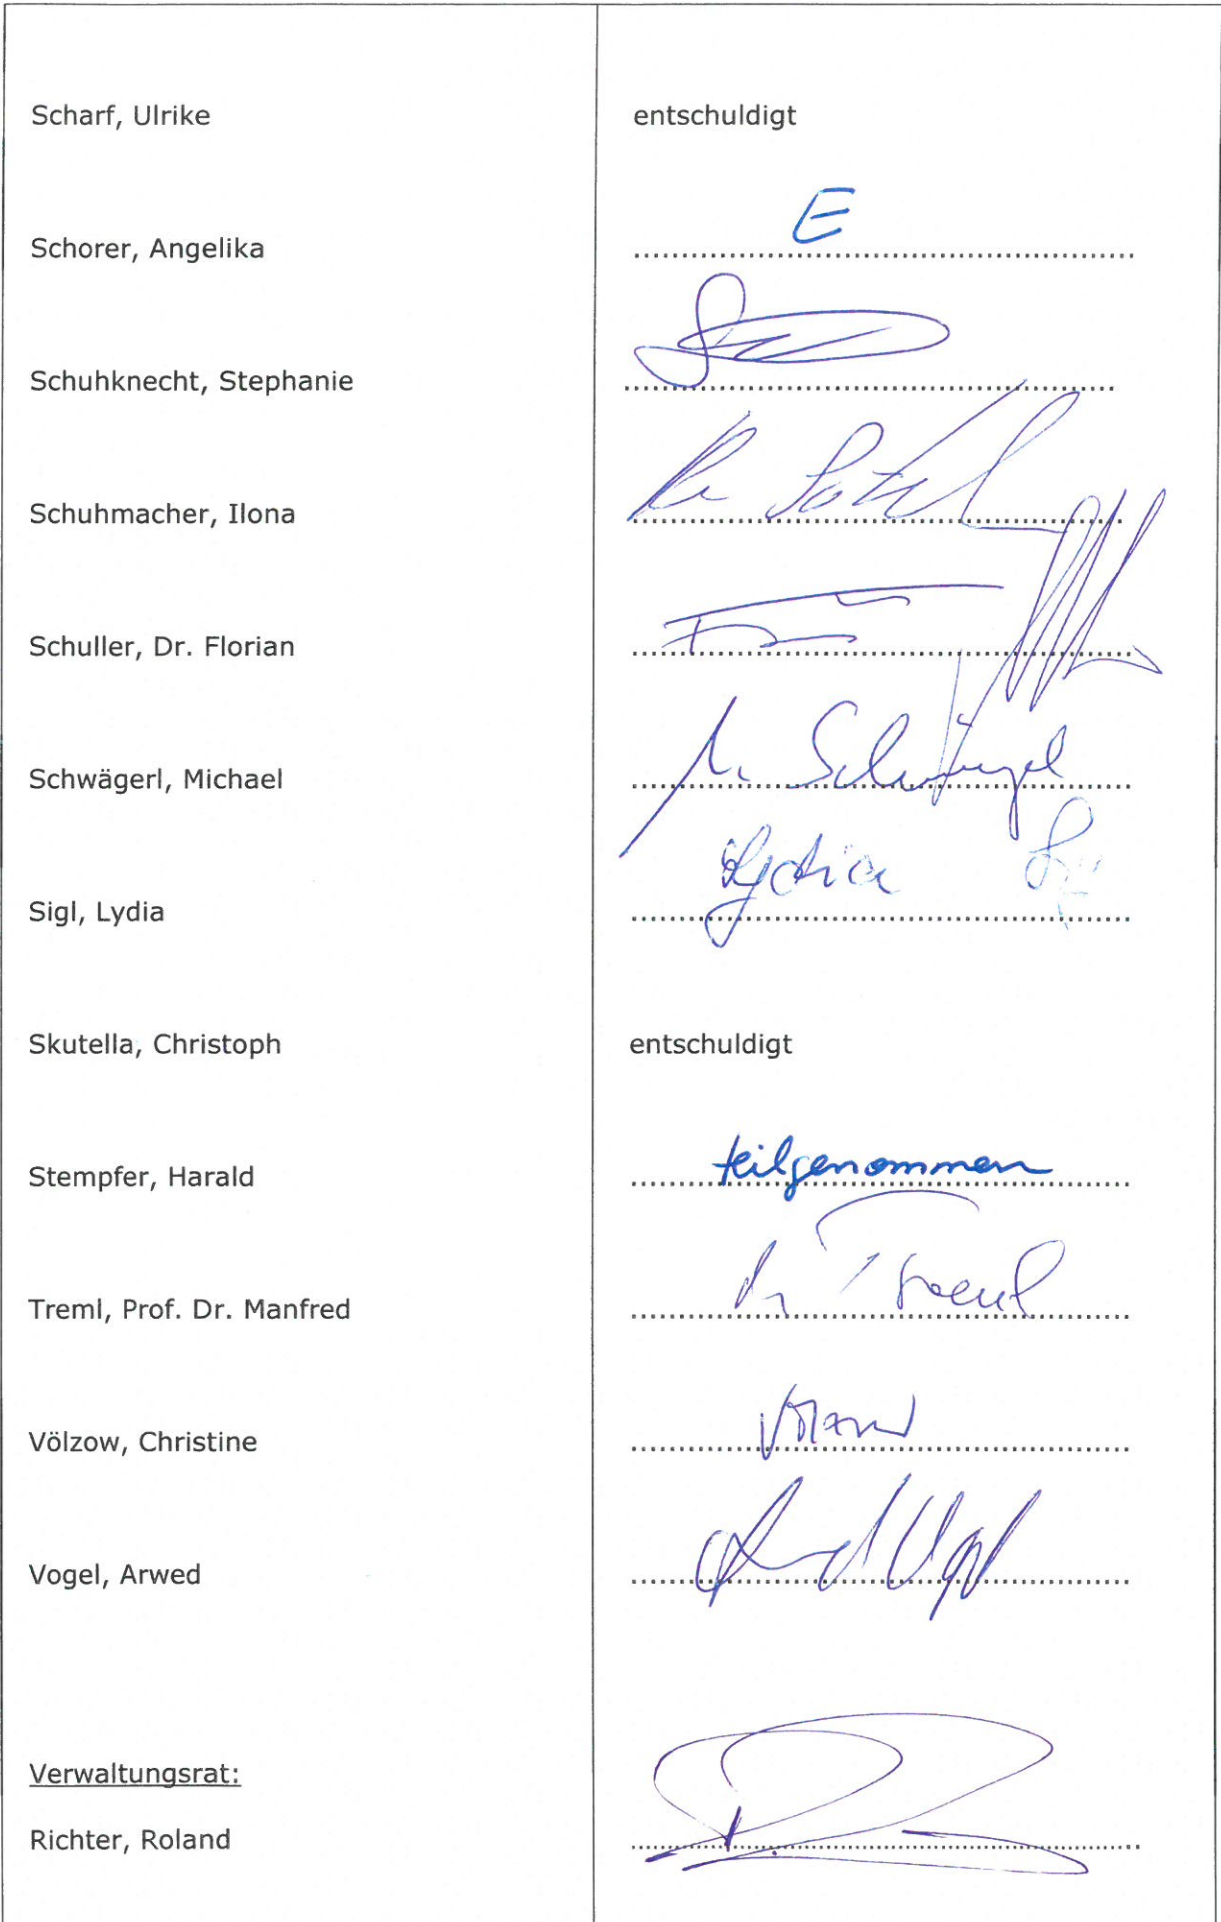 Scharf, Ulrike entschuldigt
Schorer, Angelika E
Schuhknecht, Stephanie
Schuhmacher, Ilona
Schuller, Dr. Florian
Schwägerl, Michael
Sigl, Lydia Lydia
Skutella, Christoph entschuldigt
Stempfer, Harald teilgenommen
Treml, Prof. Dr. Manfred
Völzow, Christine
Vogel, Arwed
Verwaltungsrat:
Richter, Roland